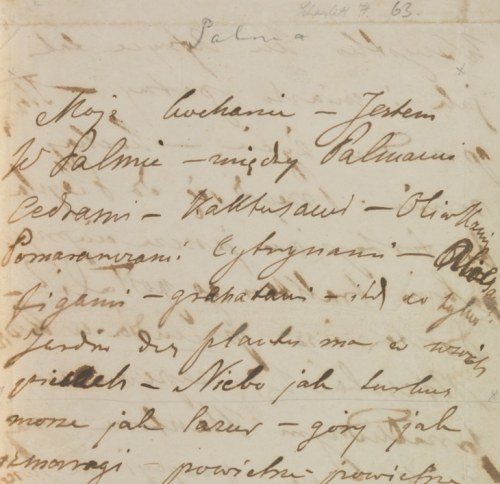 63.
Palma
Moje kochanie – Jestem
W Palmie – między Palmami
Cedrami – Kaktusami – Oliwkami
Pomarańczami Cytrynami –
figami – granatami – itd co tylko
Jardin des plantes ma w swoich
piecach – Niebo jak turkus
morze jak lazur – góry jak
szmaragi – powietrze powietrze